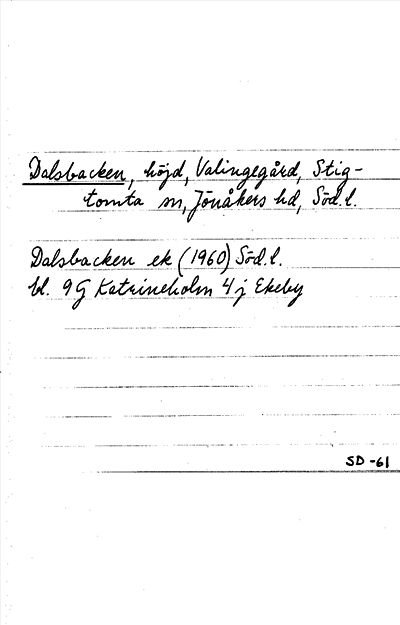 Dalsbacken, höjd, Valingegård, Stig-
tomta sn, Jönåkers hd, Söd.l.
Dalsbacken ek (1960) Söd.l.
bl. 9G Katrineholm 4j Ekeby
SD -61